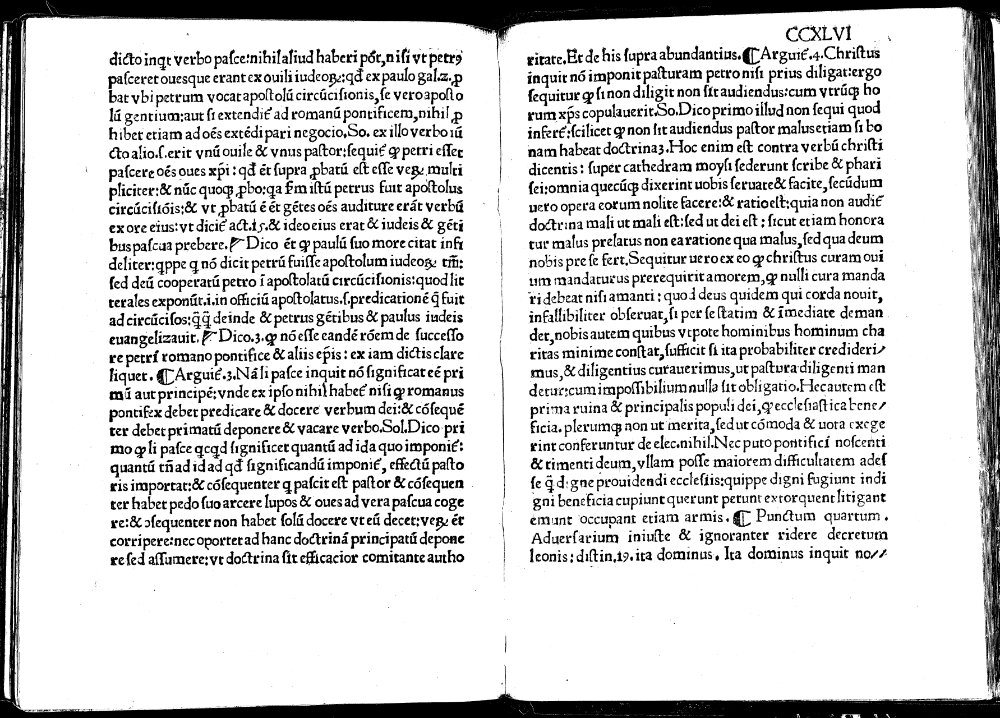 dicto inqt verbo pasce:nihil aliud haberi pót,nisi vt petrꝰ
pasceret ouesque erant ex ouili iudeoꝝ:qđ ex paulo gal.2.ꝓ
bat vbi petrum vocat apostolū circūcisionis,se vero aposto
lū gentium:aut si extendiē ad romanū pontificem,nihil ꝓ
hibet etiam ad oēs extēdi pari negocio.So. ex illo verbo iū
cto alio.s.erit vnū ouile & vnus pastor:sequiē ꝙ petri esset
pascere oēs oues xp̄i : qđ ēt supra ꝓbatū est esse veꝝ multi
pliciter:& nūc quoqꝫ ꝓbo:qa km̄ istū petrus fuit apostolus
circūcisiōis:& vt ꝓbatū ē ēt gētes oēs auditure erāt verbū
ex ore eius:vt diciē act.15.& ideo eius erat & iudeis & gēti
bus pascua prebere. Dico ēt ꝙ paulū suo more citat infi
deliter:qppe q nō dicit petrū fuisse apostolum iudeoꝝ tm̄:
sed deū cooperatū petro ī apostolatū circūcisionis:quod lit
terales exponūt.i.in officiū apostolatus.s.predicationē q̄ fuit
ad circūcisos:q̄q̄ deinde & petrus gētibus & paulus iudeis
euangelizauit. Dico.3.ꝙ nō esse eandē rōem de successo
re petri romano pontifice & aliis ep̄is : ex iam dictis clare
liquet. ¶Arguiē.3.Nā li pasce inquit nō significat eē pri
mū aut principē:vnde ex ipso nihil habeē nisi ꝙ romanus
pontifex debet predicare & docere verbum dei:& cōsequē
ter debet primatū deponere & vacare verbo.Sol.Dico pri
mo ꝙ li pasce qcqđ significet quantū ad id a quo imponiē:
quantū tn̄ ad id ad qđ significandū imponiē, effectū pasto
ris importat:& cōsequenter q pascit est pastor & cōsequen
ter habet pedo suo arcere lupos & oues ad vera pascua coge
re:& ↄsequenter non habet solū docere vt eū decet:veꝝ ēt
corripere:nec oportet ad hanc doctrinā principatū depone
re sed assumere:vt doctrina sit efficacior comitante autho
CCXLVI
ritate.Et de his supra abundantius. ¶Arguiē.4.Christus
inquit nō imponit pasturam petro nisi prius diligat:ergo
sequitur ꝙ si non diligit non sit audiendus:cum vtrūqꝫ ho
rum xp̄s copulauerit.So.Dico primo illud non sequi quod
inferē:scilicet ꝙ non sit audiendus pastor malus etiam si bo
nam habeat doctrinā.Hoc enim est contra verbū christi
dicentis : super cathedram moysi sederunt scribe & phari
sei:omnia quecūqꝫ dixerint uobis seruate & facite,secūdum
uero opera eorum nolite facere:& ratio est:quia non audiē
doctrina mali ut mali est:sed ut dei est : sicut etiam honora
tur malus prelatus non ea ratione qua malus,sed qua deum
nobis pre se fert.Sequitur uero ex eo ꝙ christus curam oui
um mandaturus prerequirit amorem,ꝙ nulli cura manda
ri debeat nisi amanti : quod deus quidem qui corda nouit,
infallibiliter obseruat,si per se statim & īmediate deman
det,nobis autem quibus vtpote hominibus hominum cha
ritas minime constat,sufficit si ita probabiliter crediderī⸗
mus,& diligentius curauerimus,ut pastura diligenti man
detur:cum impossibilium nulla sit obligatio.Hec autem est
prima ruina & principalis populi dei,ꝙ ecclesiastica bene⸗
ficia. plerumqꝫ non ut merita,sed ut cōmoda & uota exege
rint conferuntur de elec.nihil.Nec puto pontifici noscenti
& timenti deum,vllam posse maiorem difficultatem ades
se q̄ digne prouidendi ecclesiis:quippe digni fugiunt indi
gni beneficia cupiunt querunt petunt extorquent litigant
emunt occupant etiam armis. ¶ Punctum quartum.
Aduersarium iniuste & ignoranter ridere decretum
leonis: distin.19.ita dominus. Ita dominus inquit no⸗⸗